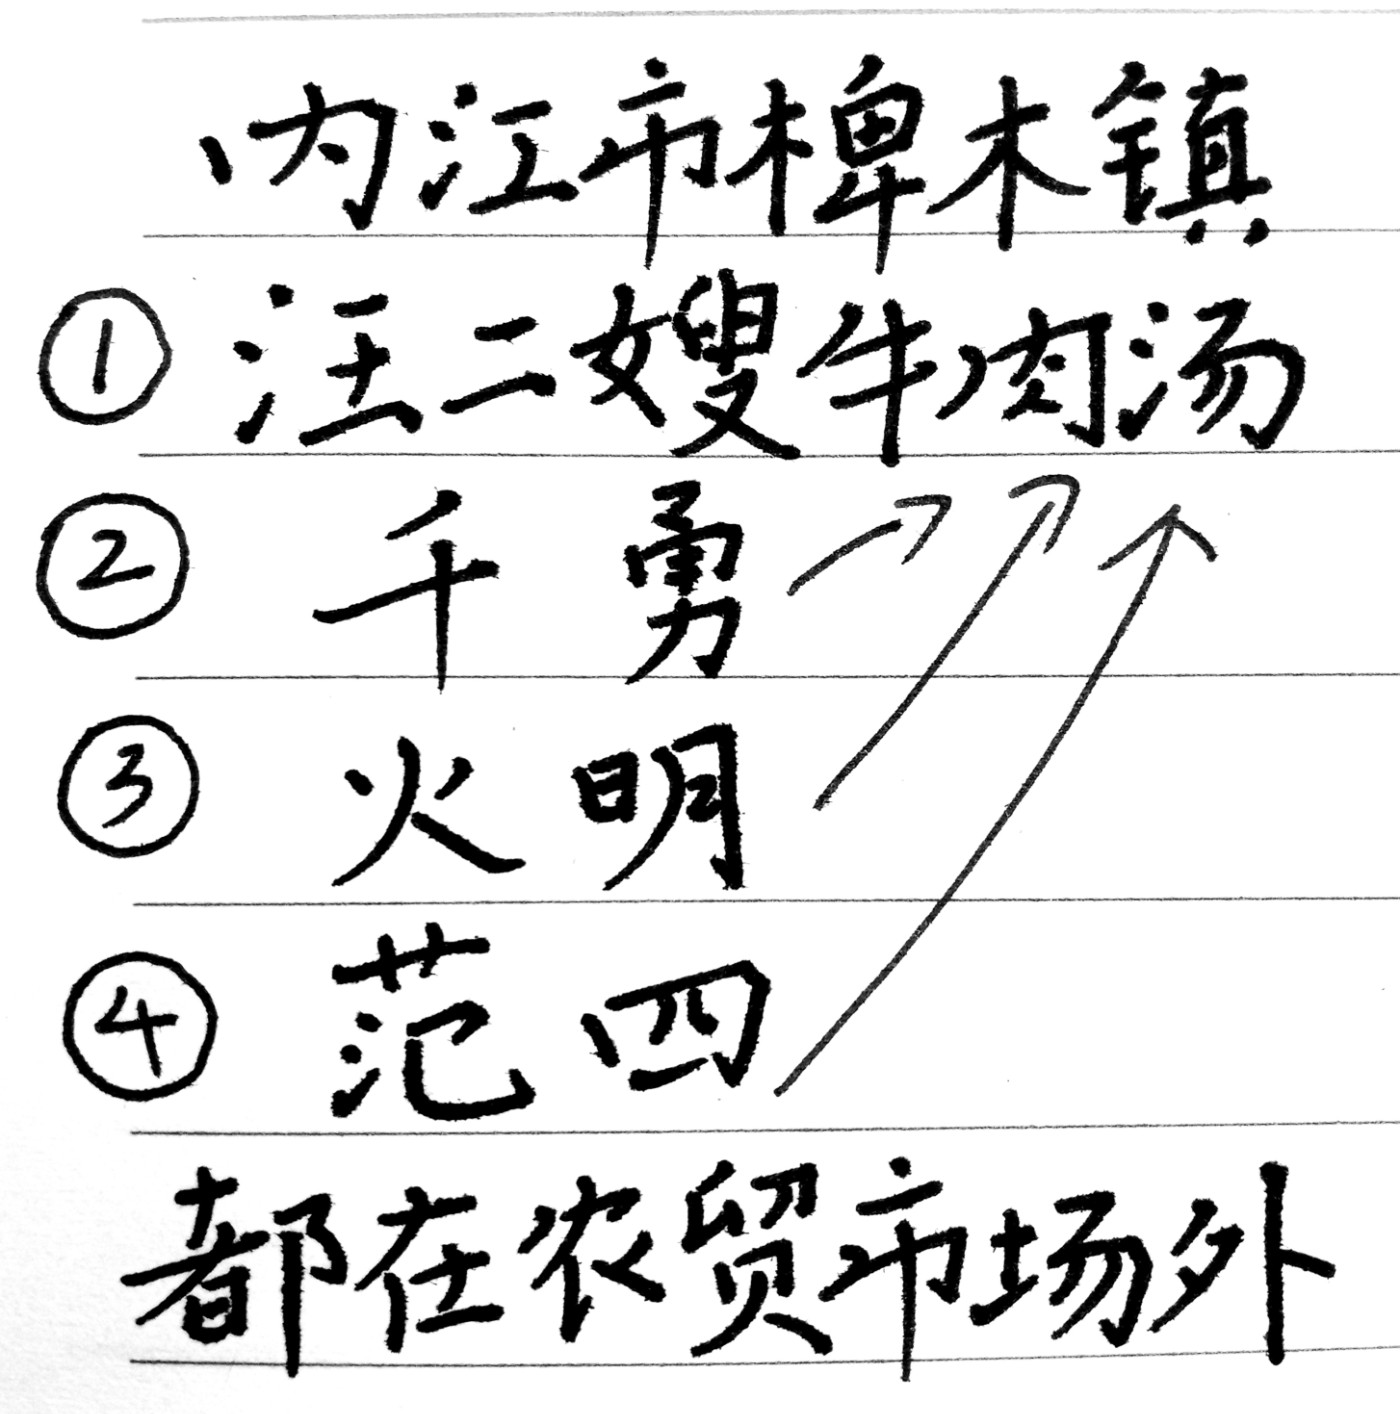 内江市椑木镇
① 汪二嫂牛肉汤
② 千勇
③ 火明
④ 范四
都在农贸市场外